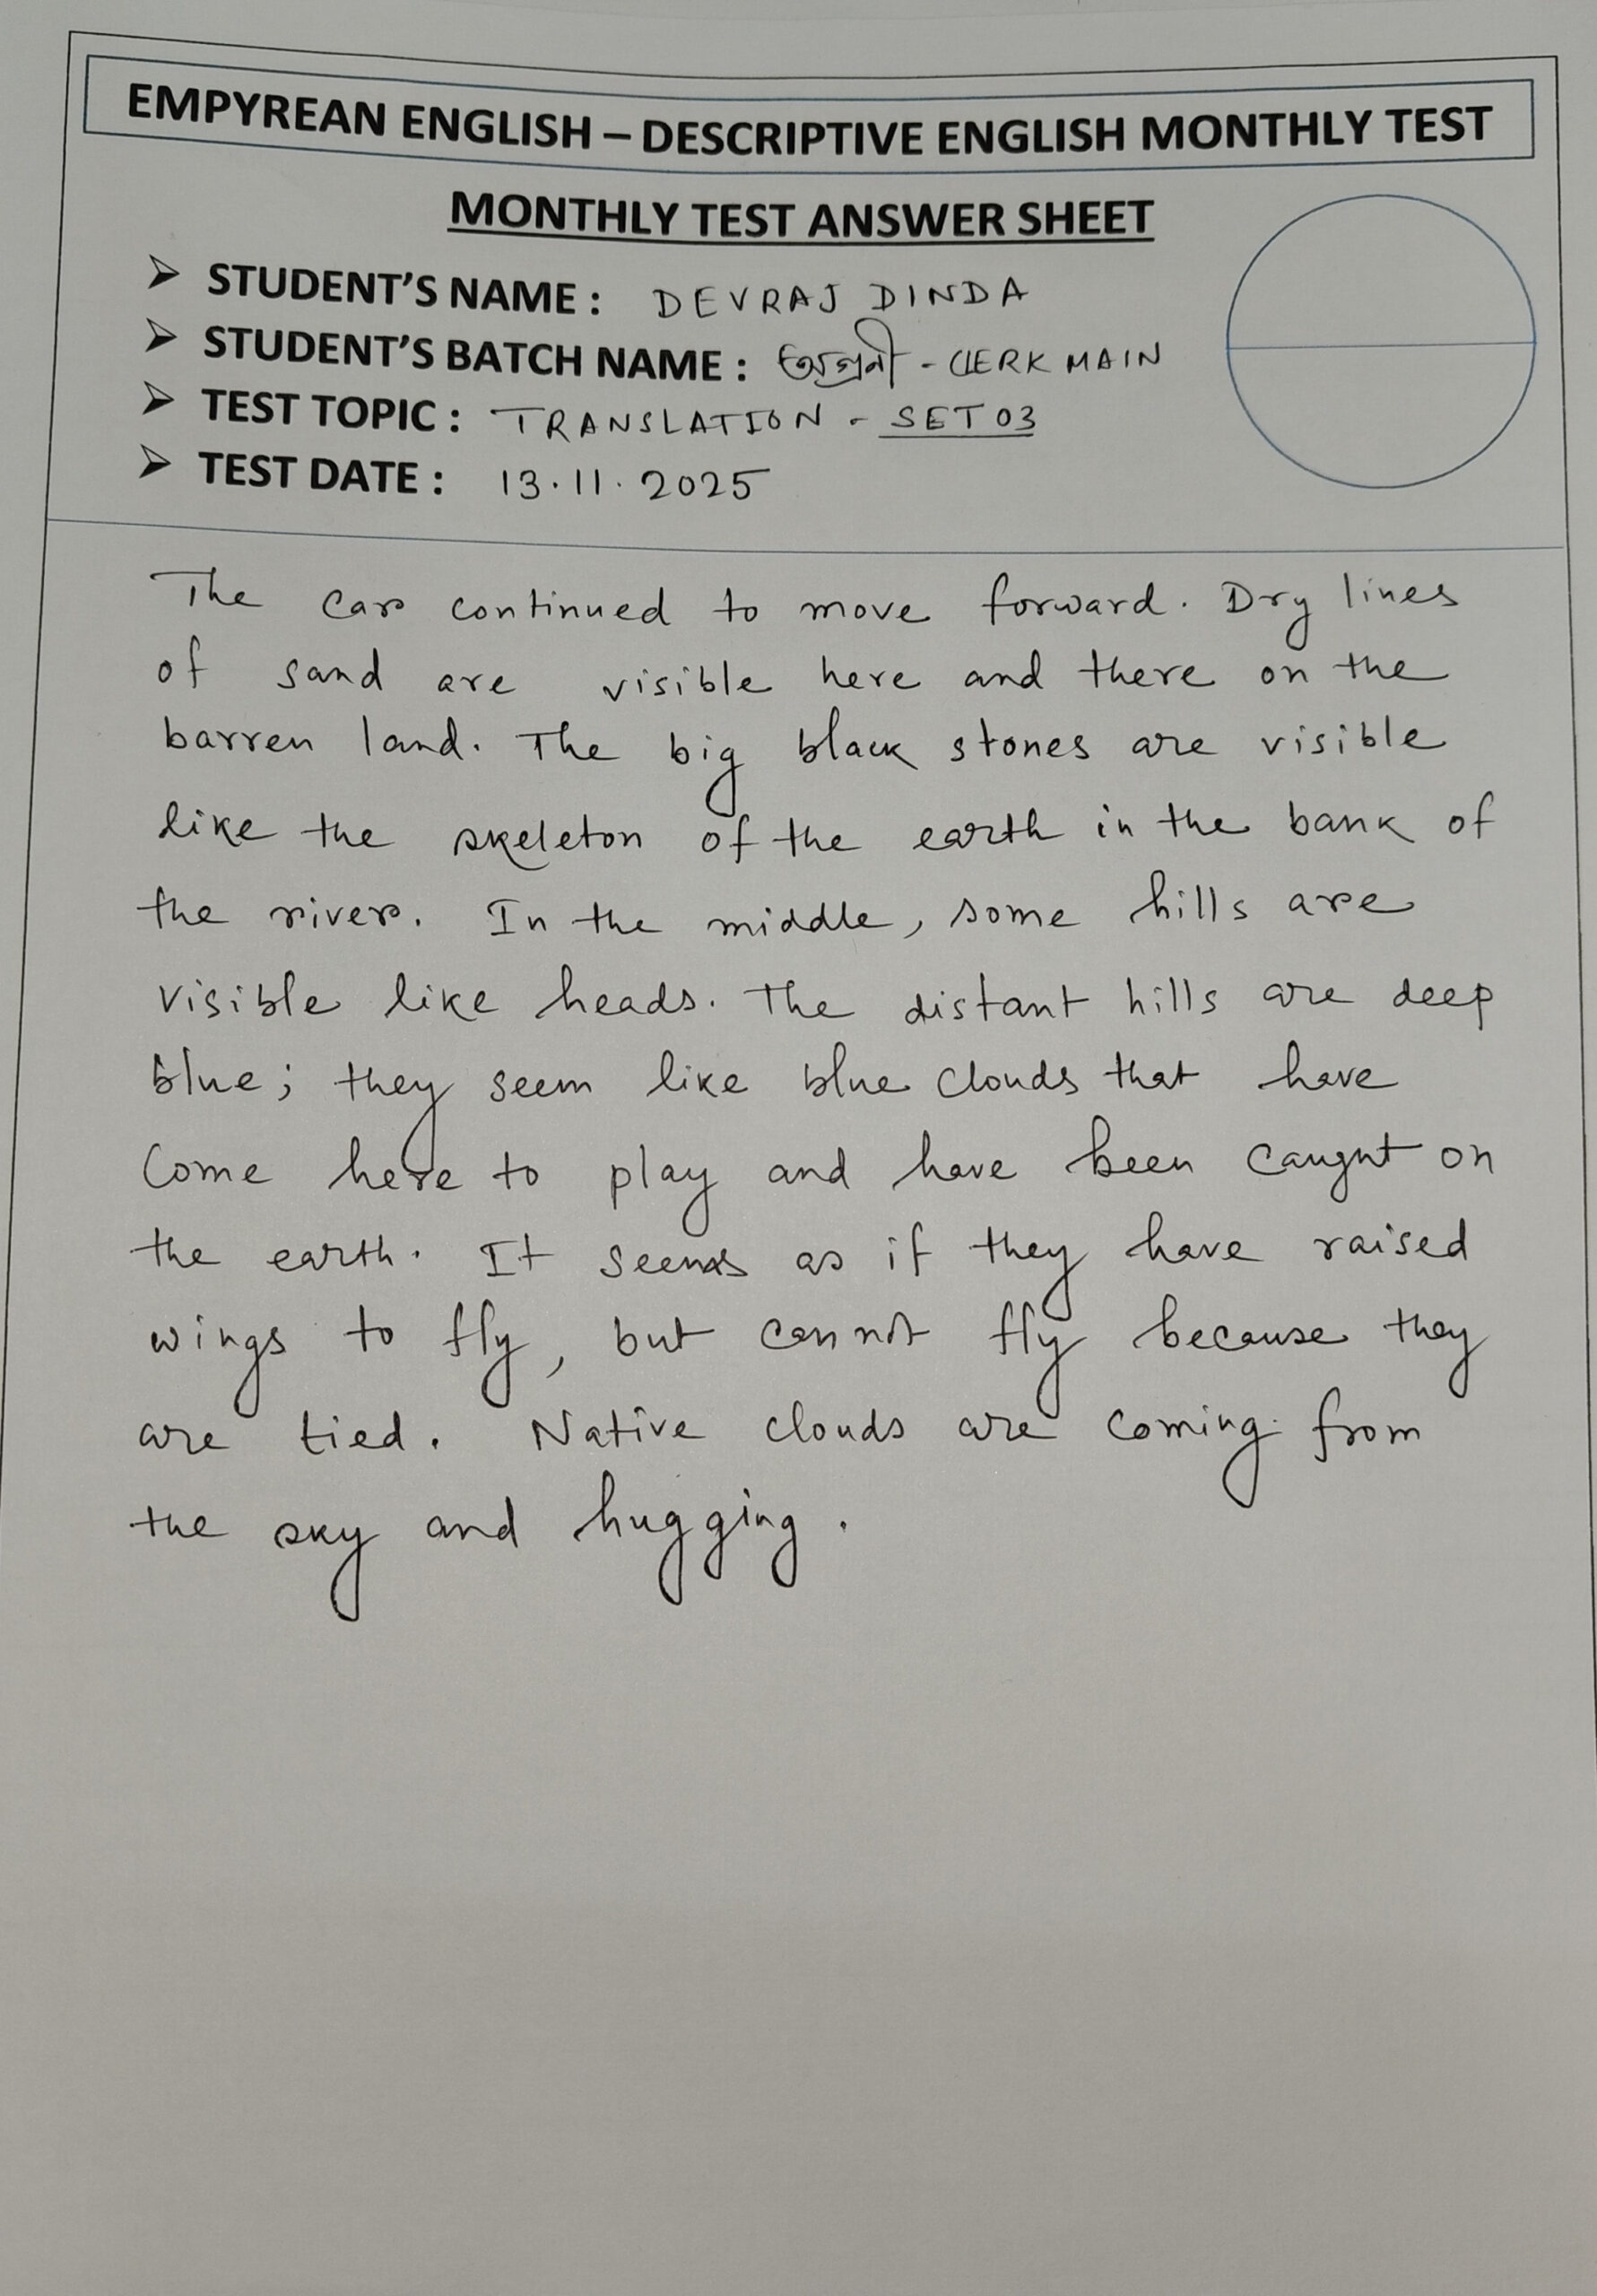 EMPYREAN ENGLISH – DESCRIPTIVE ENGLISH MONTHLY TEST
MONTHLY TEST ANSWER SHEET
➢ STUDENT'S NAME : DEVRAJ DINDA
➢ STUDENT'S BATCH NAME : অগ্রণী - CLERK MAIN
➢ TEST TOPIC : TRANSLATION - SET 03
➢ TEST DATE : 13.11.2025
The car continued to move forward. Dry lines
of sand are visible here and there on the
barren land. The big black stones are visible
like the skeleton of the earth in the bank of
the river. In the middle, some hills are
visible like heads. The distant hills are deep
blue; they seem like blue clouds that have
come here to play and have been caught on
the earth. It seems as if they have raised
wings to fly, but cannot fly because they
are tied. Native clouds are coming from
the sky and hugging.